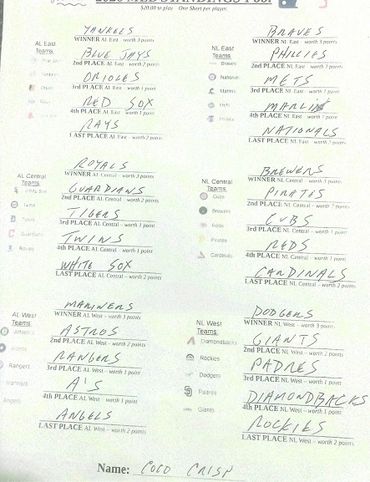 MLB STANDINGS POOL
$20.00 to play One Sheet per player.
YANKEES
WINNER AL East - worth 3 points
BLUE JAYS
2nd PLACE AL East - worth 2 points
ORIOLES
3rd PLACE AL East - worth 1 point
RED SOX
4th PLACE AL East - worth 1 point
RAYS
LAST PLACE AL East - worth 2 points
AL East
Teams
BRAVES
WINNER NL East - worth 3 points
PHILLIES
2nd PLACE NL East - worth 2 points
METS
3rd PLACE NL East - worth 1 point
MARLINS
4th PLACE NL East - worth 1 point
NATIONALS
LAST PLACE NL East - worth 2 points
NL East
Teams
Braves
Nationals
ROYALS
WINNER AL Central - worth 3 points
GUARDIANS
2nd PLACE AL Central - worth 2 points
TIGERS
3rd PLACE AL Central - worth 1 point
TWINS
4th PLACE AL Central - worth 1 point
WHITE SOX
LAST PLACE AL Central - worth 2 points
AL Central
Teams
Twins
Guardians
Royals
BREWERS
WINNER NL Central - worth 3 points
PIRATES
2nd PLACE NL Central - worth 2 points
CUBS
3rd PLACE NL Central - worth 1 point
REDS
4th PLACE NL Central - worth 1 point
CARDINALS
LAST PLACE NL Central - worth 2 points
NL Central
Teams
Cubs
Brewers
Reds
Pirates
Cardinals
MARINERS
WINNER AL West - worth 3 points
ASTROS
2nd PLACE AL West - worth 2 points
RANGERS
3rd PLACE AL West - worth 1 point
A'S
4th PLACE AL West - worth 1 point
ANGELS
LAST PLACE AL West - worth 2 points
AL West
Teams
Athletics
Astros
Rangers
Mariners
Angels
DODGERS
WINNER NL West - worth 3 points
GIANTS
2nd PLACE NL West - worth 2 points
PADRES
3rd PLACE NL West - worth 1 point
DIAMONDBACKS
4th PLACE NL West - worth 1 point
ROCKIES
LAST PLACE NL West - worth 2 points
NL West
Teams
Diamondbacks
Rockies
Dodgers
Padres
Giants
Name: COCO CRISP